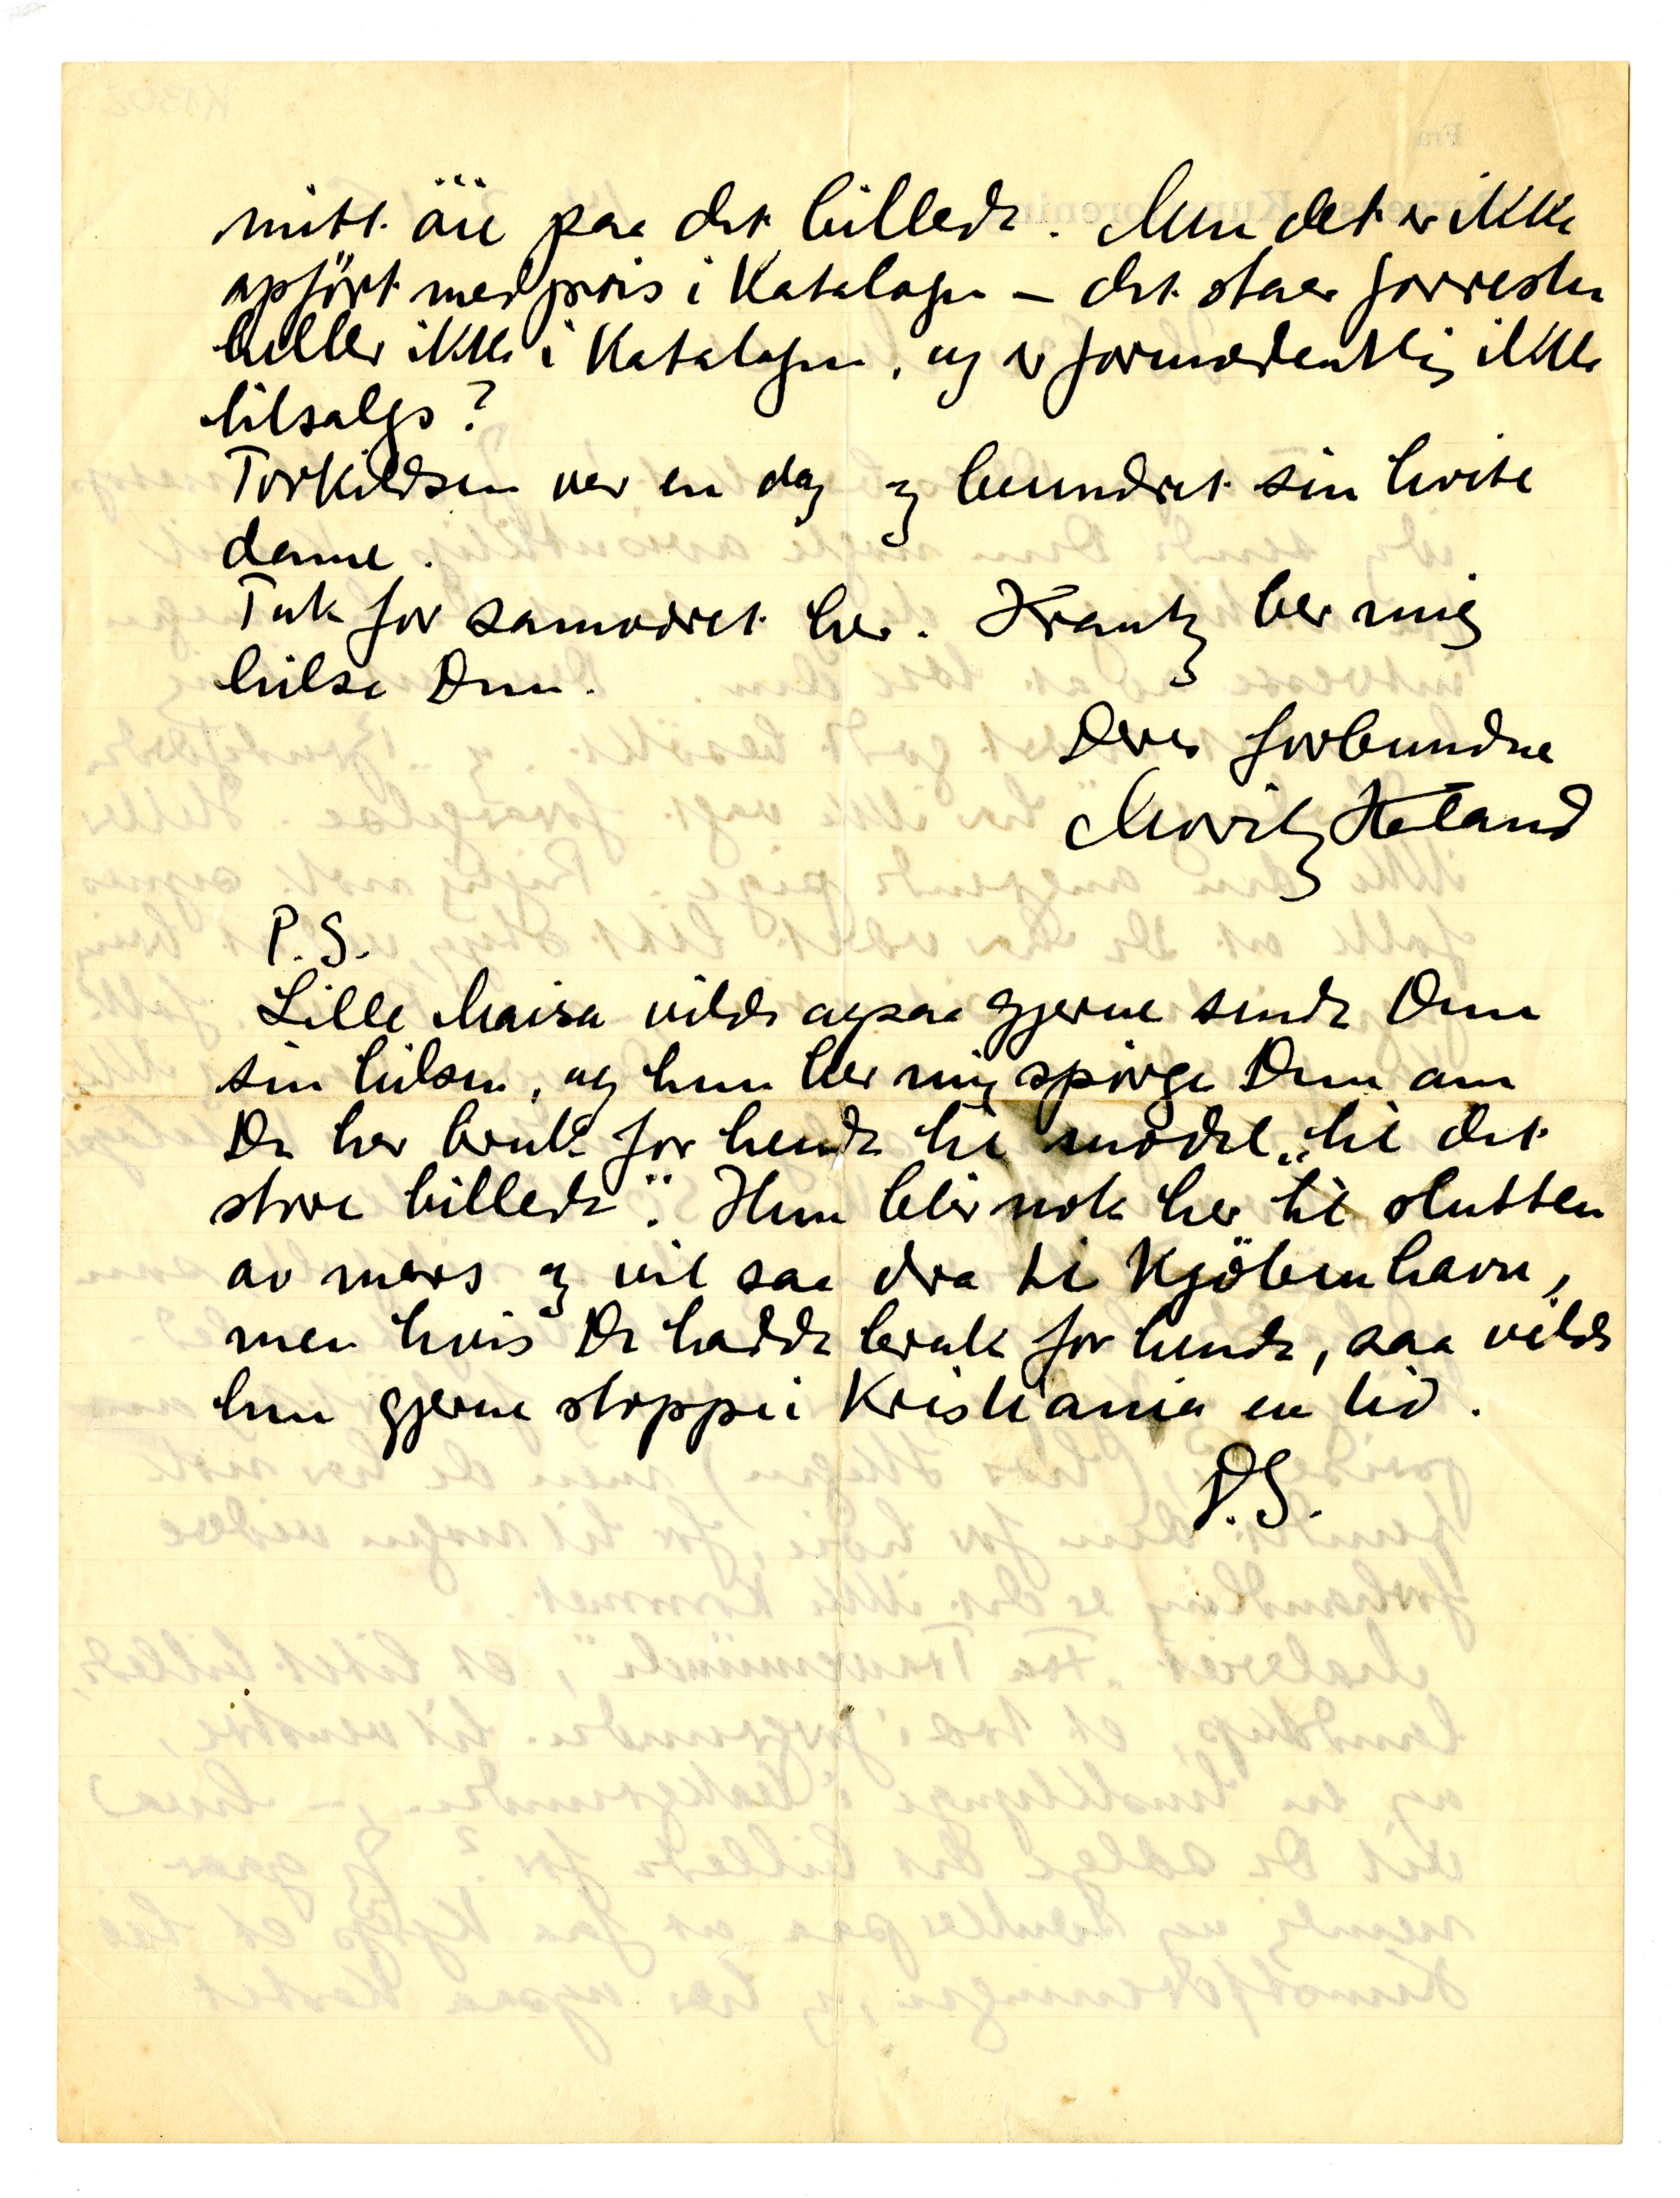 mitt öie paa det billede. Men det er ikke
opfört med pris i Katalogen – det staar forresten
heller ikke i Katalogen, og er formodentlig ikke
tilsalgs?
Torkildsen var en dag og beundret sin hvite
dame.
Tak for samværet her. Krantz ber mig
hilse Dem.
Deres forbundne
Moritz Kaland
P.S.
Lille Maisa vilde ogsaa gjerne sende Dem
sin hilsen, og hun ber mig spörge Dem om
De har bruk for hende til model „til det
store billede". Hun blir nok her til slutten
av mars og vil saa dra til Kjöbenhavn,
men hvis De hadde bruk for hende, saa vilde
hun gjerne stoppe i Kristiania en tid.
D.S.